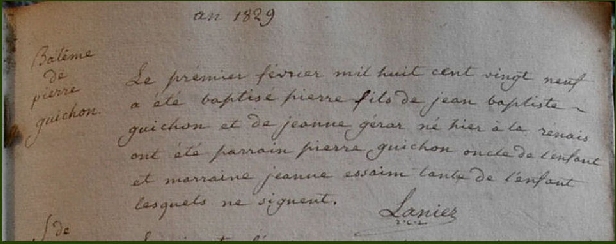 an 1829
Batême
de
pierre
guichon
Le premier février mil huit cent vingt neuf
a été baptisé pierre fils de jean baptiste
guichon et de jeanne gérar né hier à la renais
ont été parrain pierre guichon oncle de l'enfant
et marraine jeanne essaim tante de l'enfant
lesquels ne signent.
Laniez
de